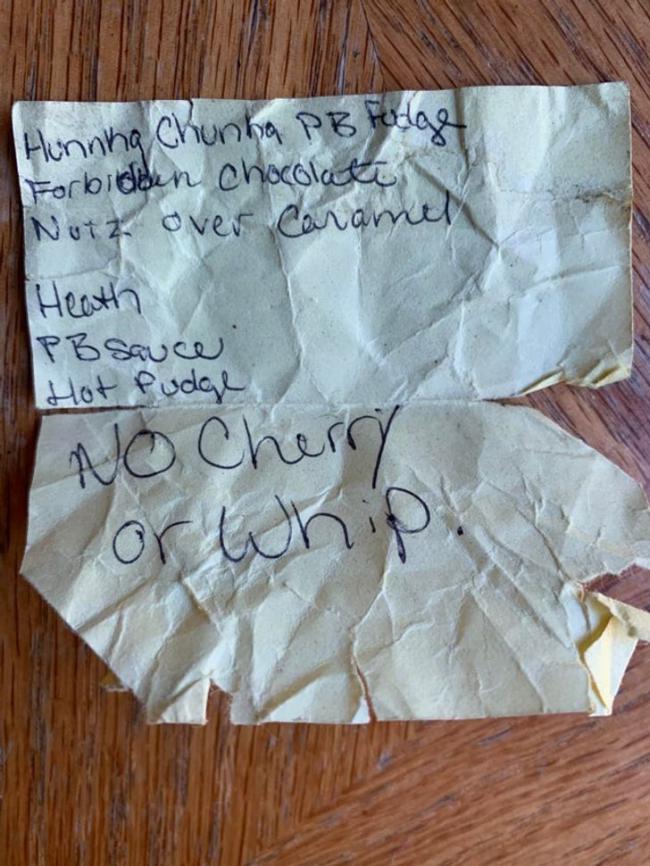 Hunnka Chunka PB Fudge
Forbidden Chocolate
Nutz over Caramel
Heath
PB sauce
Hot Fudge
NO Cherry
or Whip.